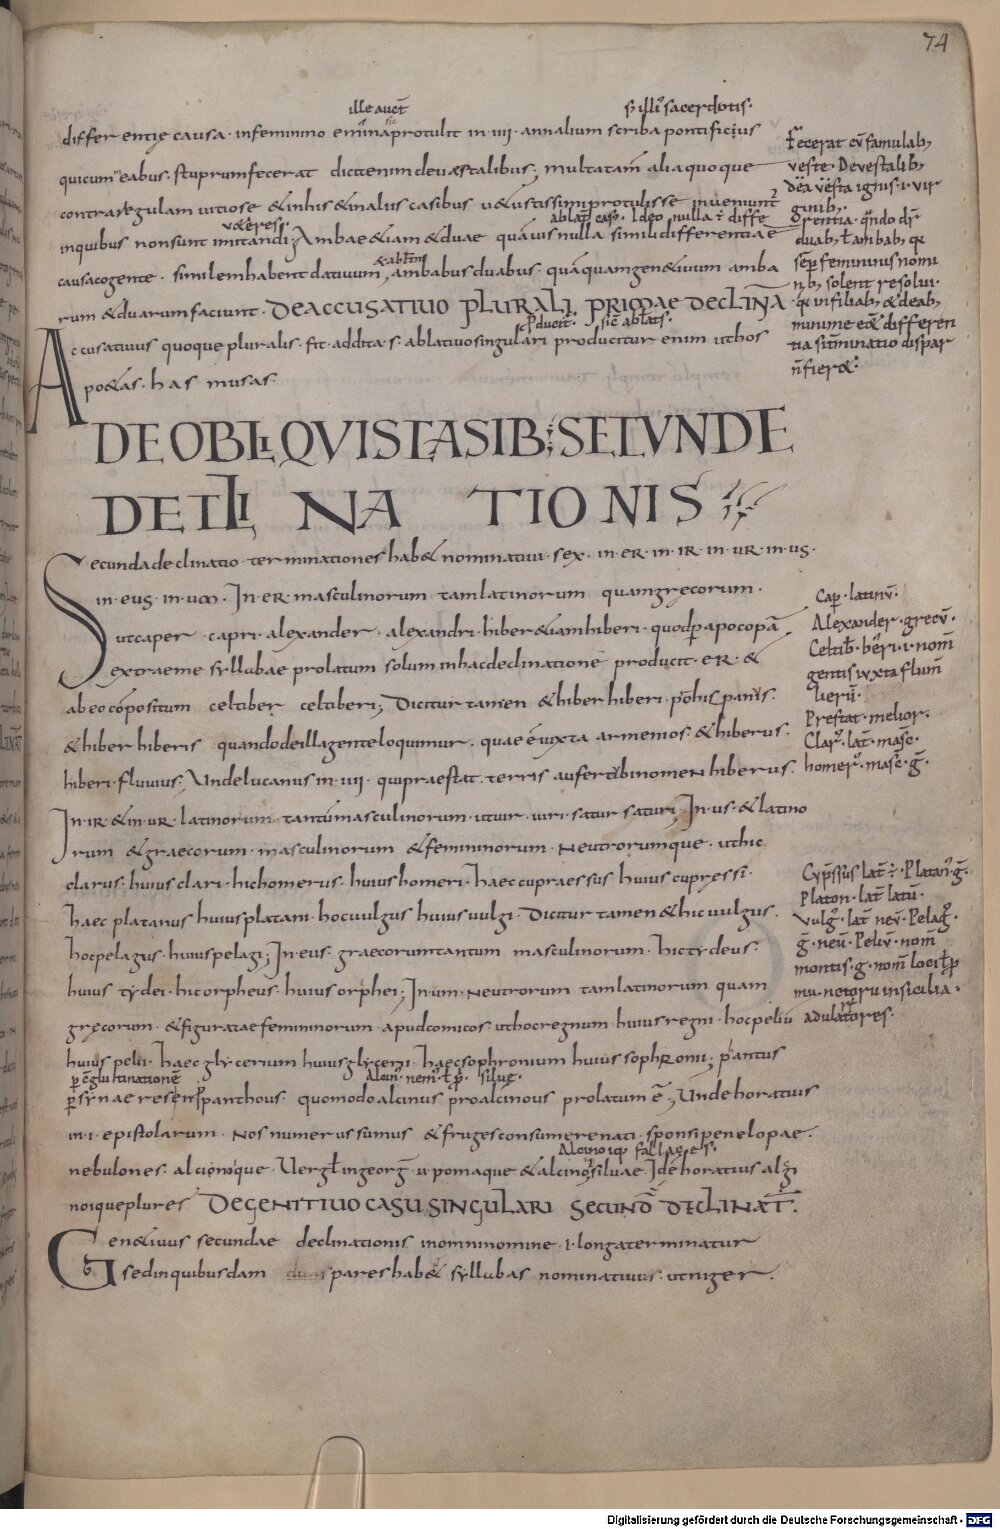 74
ille auct̄
s. illiꝰ sacerdotis·
differentię causa· infeminino eminaprotulit in· iiii· annalium scriba pontificius
quicum eabus· stuprumfecerat dicitenimdeuestalibus; multatam aliaquoque
contraregulam uitiose &inhis&inaliis casibus u&ustissimiprotulisse inueniunt᷑
u&eres·
ablat̄ casꝰ· Ideo nulla ÷ diffe
inquibus nonsunt imitandi; Ambae&iam&duae quamuisnulla similidifferentiaē
&ablt̄m
causacogente· similemhabentdatiuum, ambabusduabus· quāquamgen&iuum amba
rum &duarumfaciunt· DEACCUSATIUO PLURALI PRIMAE DECLINĀ
ꝓducit̄·
sic̄ ablatꝰ·
Accusatiuus quoquepluralis· fit· addita·s· ablatiuosingulari producitur enim uthos
apo&as· has musas·
fecerat cū famulab;
ueste· Deuestalib;
dea uesta ignis· i· uir
ginib;·
rentia· qn̄do dr̄
duab; ł ambab; q̄
sēp femininus nomi
nib; solent resolui·
q̄ infiliab; &deab;
minime eā differen
tia sit̄minatio dispar
n̄fier&·
DE OBLIQVIS CASIB; SECVNDE
DECLI NA TIO NIS
Secundadeclinatio· terminationes hab& nominatiui· sex· in· ER· in· IR· in· UR· in· us·
in· eus· in· um· In· ER· masculinorum tamlatinorum quamgręcorum·
utcaper· capri· alexander· alexandri· hiber&iamhiberi· quodꝑapocopā
extraeme syllubae prolatum solum inhacdeclinatione producit· ER· &
abeocōpositum celtiber celtiberi; Dicitur tamen &hiber hiberi· ꝓhispanus·
&hiber hiberis quandodeillagenteloquimur· quae ē iuxta armenios· &hiberus·
hiberi· fluuius; Undelucanus in· iiii· quipraestat· terris aufertubinomen hiberus·
In· IR· &in· UR· latinorum· tantummasculinorum· utuir· uiri· satur saturi; In· us· &latino
rum &graecorum· masculinorum &femininorum· Neutrorumque· uthic
clarus· huius clari· hichomerus· huiushomeri· haeccupraessus huius cupręssi·
haec platanus huiusplatani· hocuulgus huius uulgi· Dicitur tamen&hicuulgus·
hocpelagus· huiuspelagi; In· eus· graecorumtantum masculinorum· hictydeus·
huius tydei· hicorpheus· huius orphei; In· um· Neutrorum tamlatinorum quam
gręcorum· &figuratae femininorum· apudcomicos uthocregnum· huius regni· hocpeliu
huius pelii· haec glycerium huiusglycerii· haecsophronium huius sophronii; ꝓantus
ꝑ cōglutinationē
Alcinꝰ· nem̄ ł ꝓ· siluę·
ꝑ synaeresen ꝓpanthous· quomodoalcinus proalcinous prolatum ē; Undehoratius
in· i· epistolarum· Nos numerus sumus &frugesconsumerenati· sponsipenelopae·
Alcinoiq; fallaces·
nebulones· alcinoique· Uergł ingeorg̅· ii· pomaque &alcinoisiluae· Idēhoratius alci
noiqueplures DEGENITIUO CASU SINGULARI SECUNDĒ DECLINAT̄·
Gen&iuus secundae declinationis inomninomine· i· longaterminatur
sedinquibusdam pareshab& syllubas nominatiuus· utniger·
Cap̄· latinū·
Alexander· grecū·
Celtib̄· beri· i· nom̄
gentis iuxta flum̄
hiberū·
Prestat· melior·
Clarꝰ· lat̄· masc̄·
homerꝰ· masc̄· g̅·
Cyp̄ssus lat̄ ÷· Platanꝰ· g̅·
Platon· lat̄ latū·
Vulgꝰ· lat̄ neū· Pelagꝰ·
g̅· neū· Peliū· nom̄
montis· g· nom̄ loci ł ꝓ
insicilia·
adulatores·
Digitalisierung gefördert durch die Deutsche Forschungsgemeinschaft - DFG